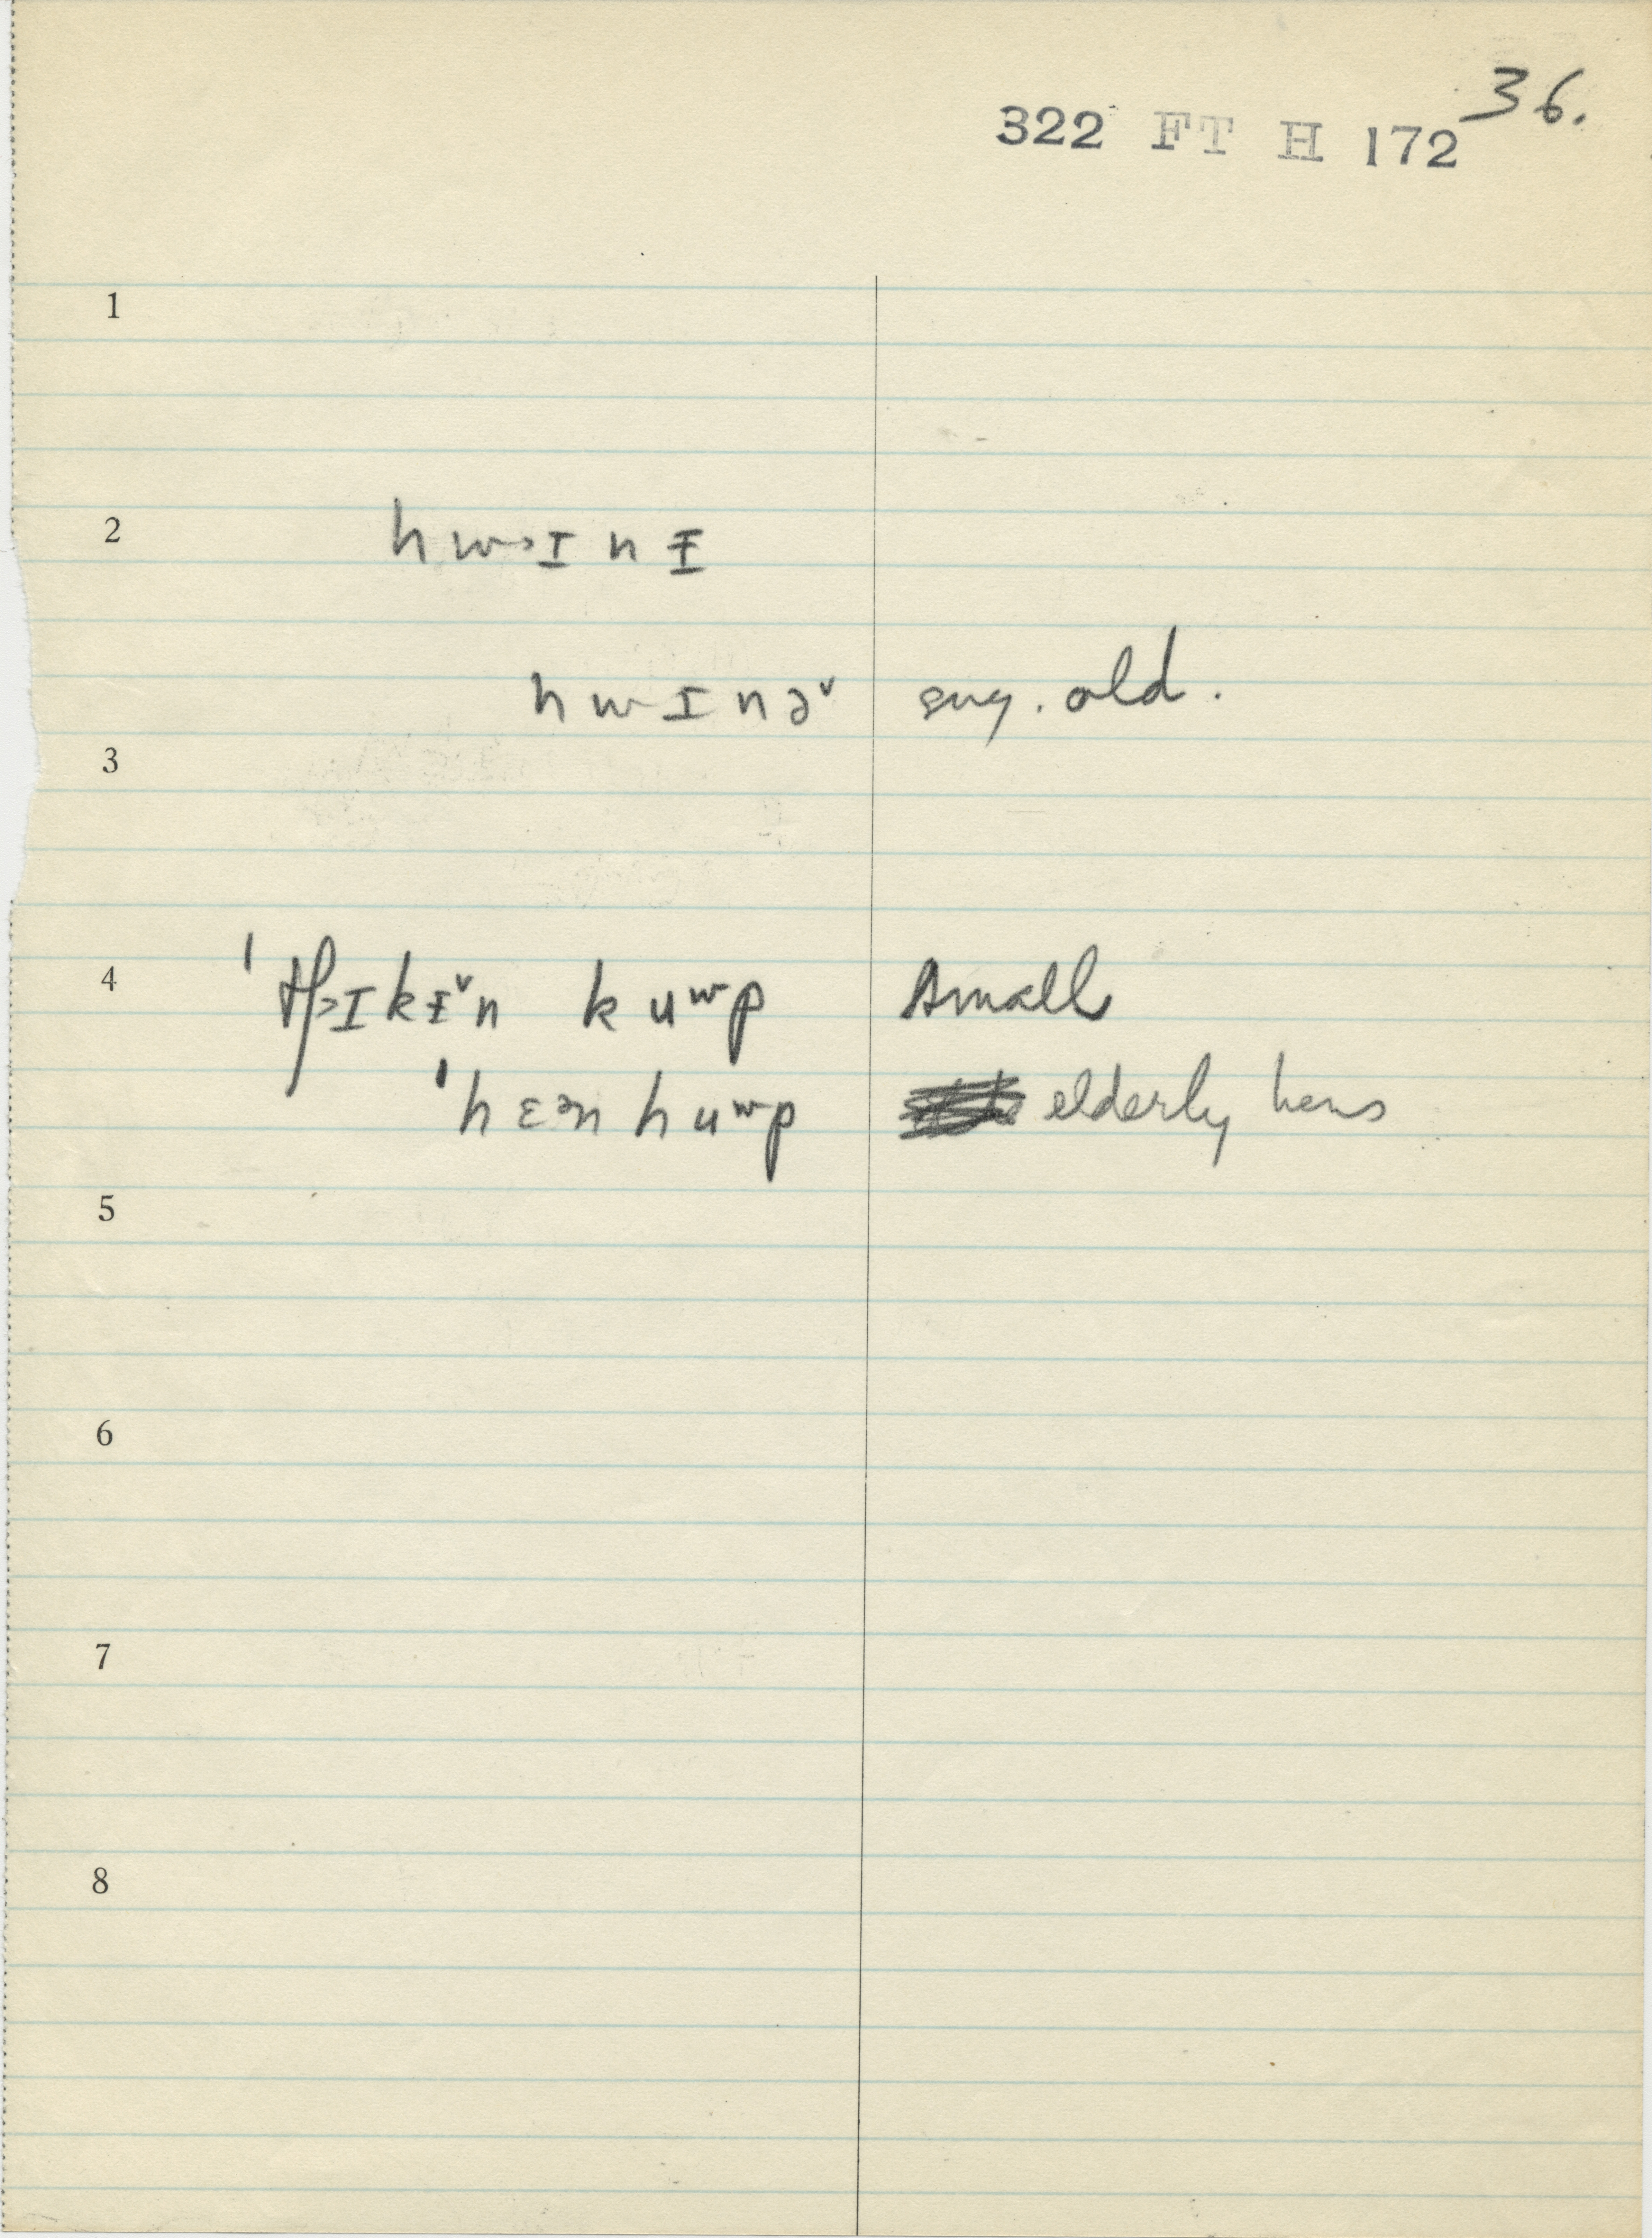 36.
322 FT H 172
1
2
hw˃ɪnɪ̵
hwɪnə˅ sug. old.
3
4
ˈtʃ˃ɪkɪ̵˅n kuʷp Small
ˈhɛᵊn huʷp elderly hens
5
6
7
8